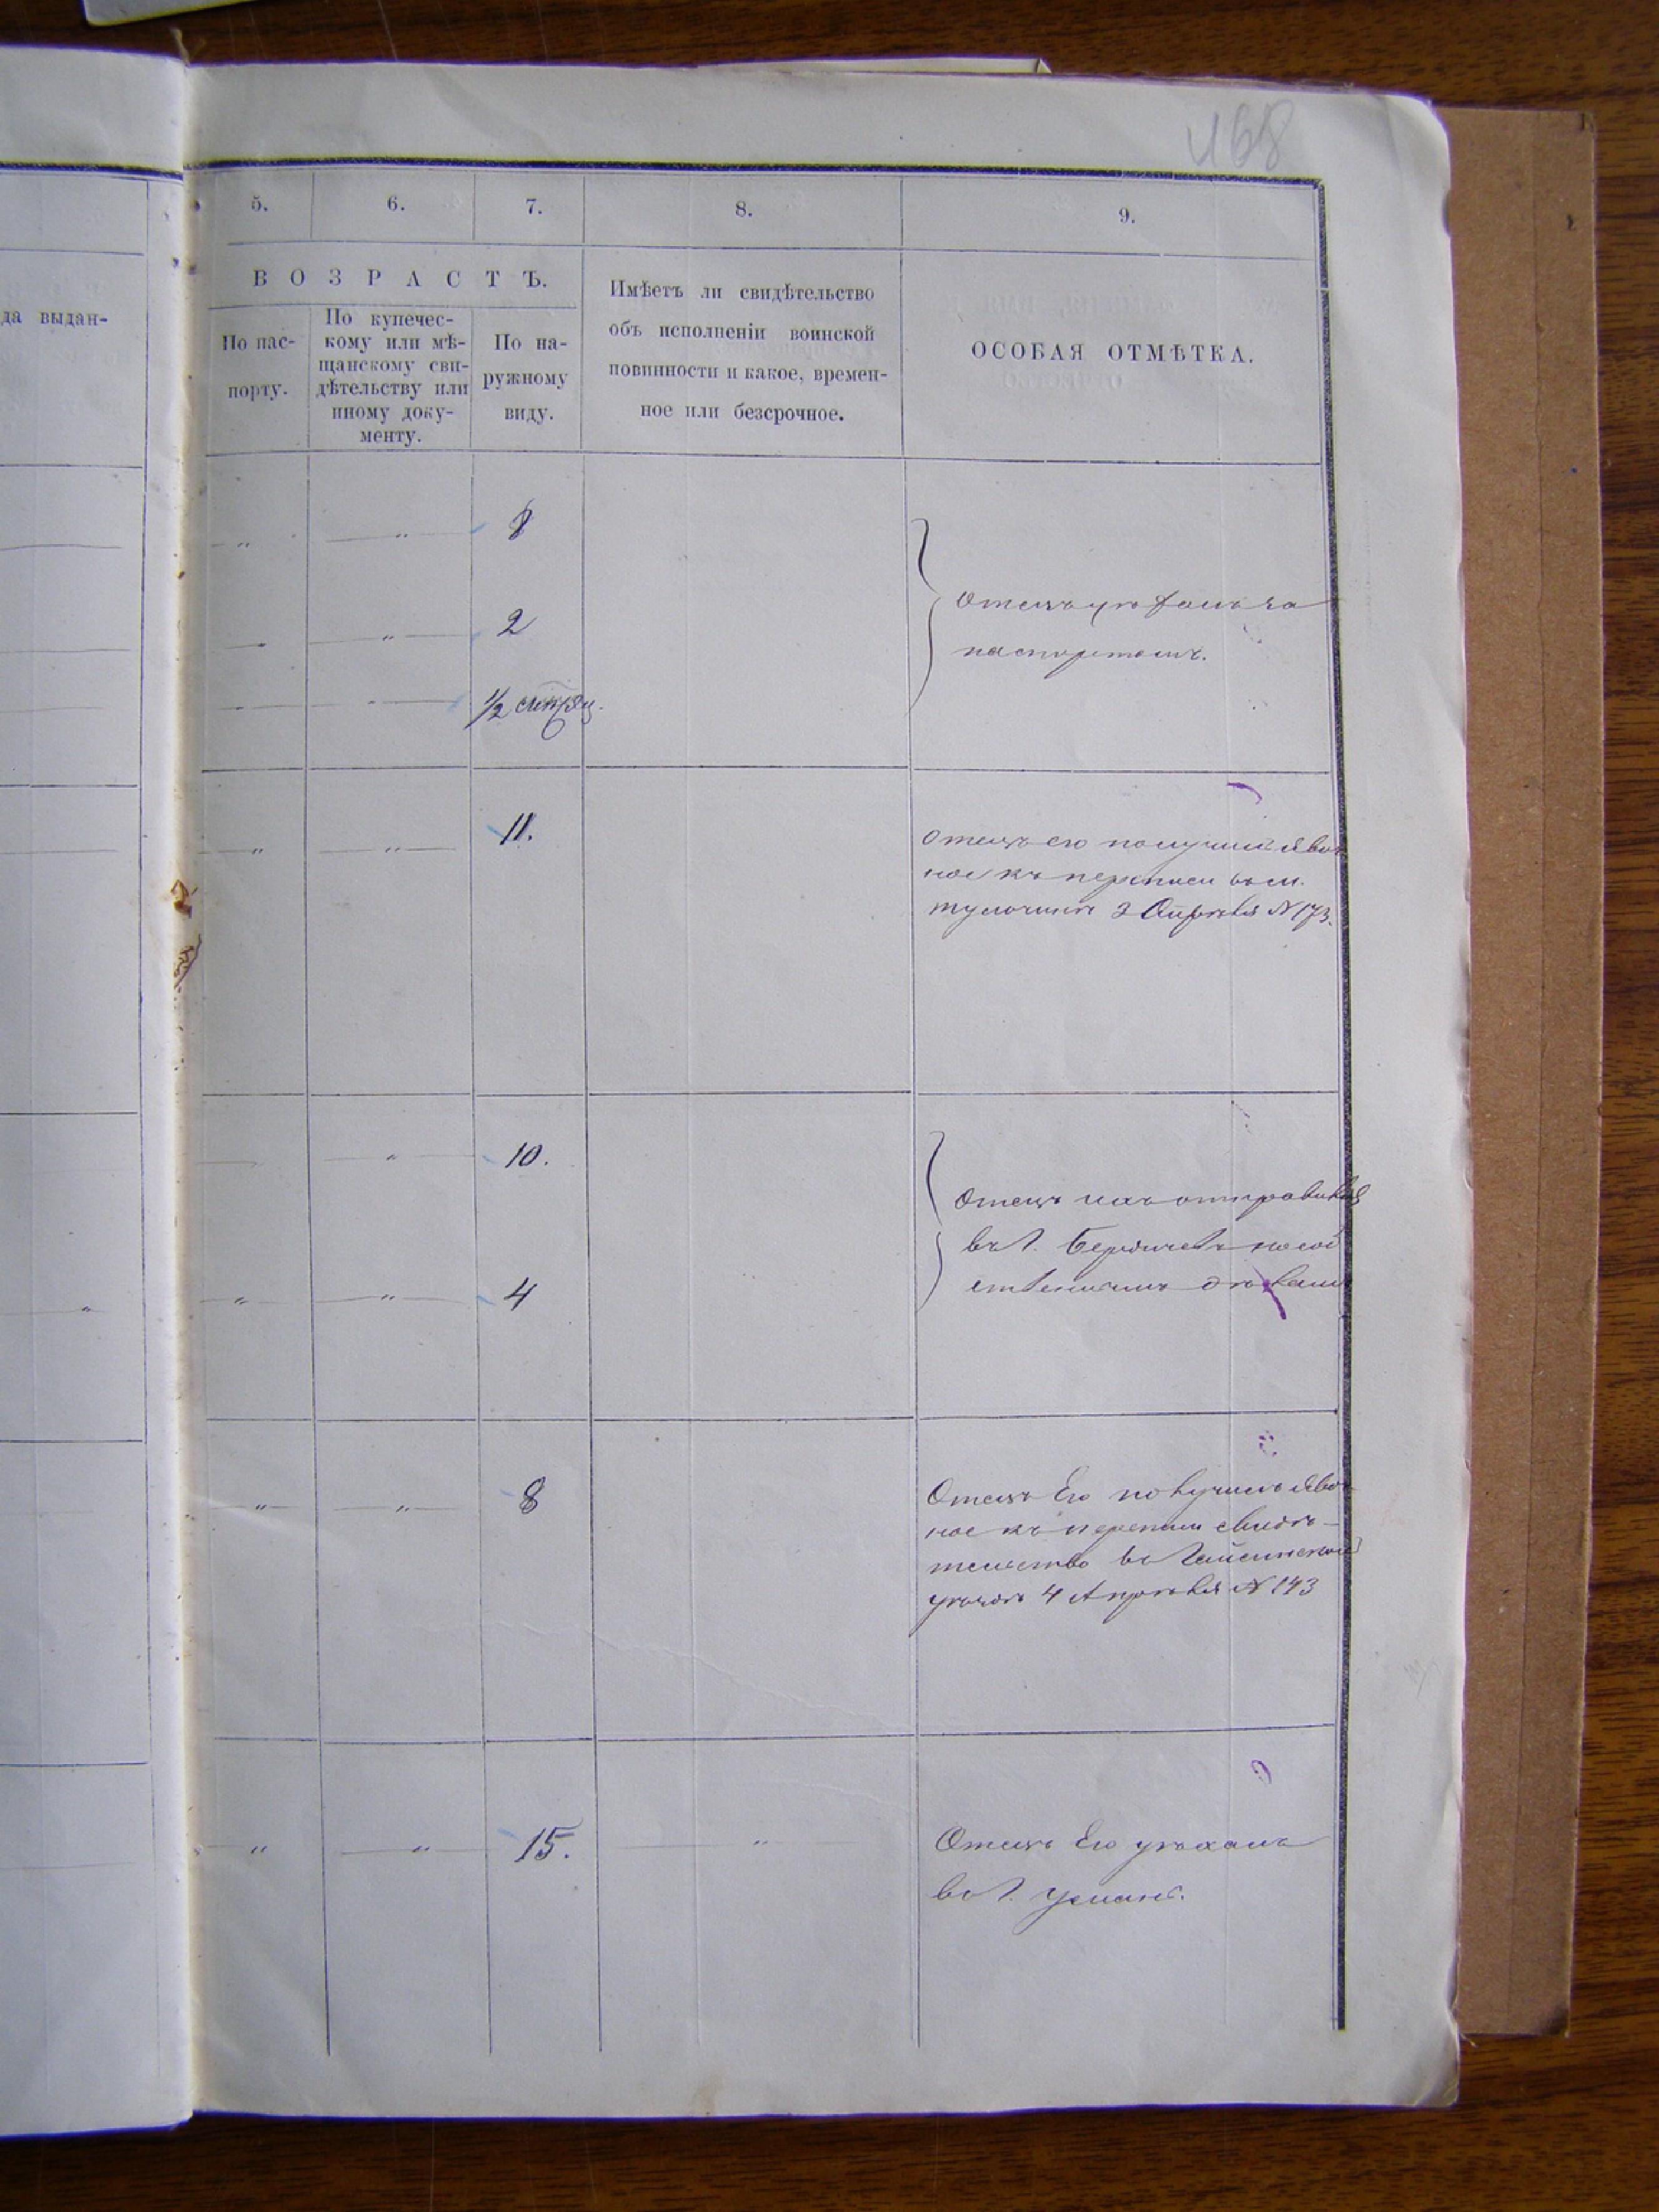 468
да выдан-
5.
6.
7.
8.
9.
ВОЗРАСТЪ.
По пас-
порту.
По купечес-
кому или мѣ-
щанскому сви-
дѣтельству или
иному доку-
менту.
По на-
ружному
виду.
Имѣетъ ли свидѣтельство
объ исполненіи воинской
повинности и какое, времен-
ное или безсрочное.
ОСОБАЯ ОТМѢТКА.
" " 8
" 2
1/2
Отецъ за
паспортомъ.
" " 11.
Отецъ его получилъ явоч
ное къ переписи въ м.
Тульчинѣ 3 Апрѣля №173.
" 10.
" " 4
Отецъ ихъ отправился
въ г. Бердичевъ по соб
ственнымъ дѣламъ
" " 8
Отецъ Его получилъ явоч
ное къ переписи свидѣ-
тельство въ Гайсинскомъ
уѣздѣ 4 Апрѣля №143
" " 15. "
Отецъ Его уѣхалъ
въ г. Умань.